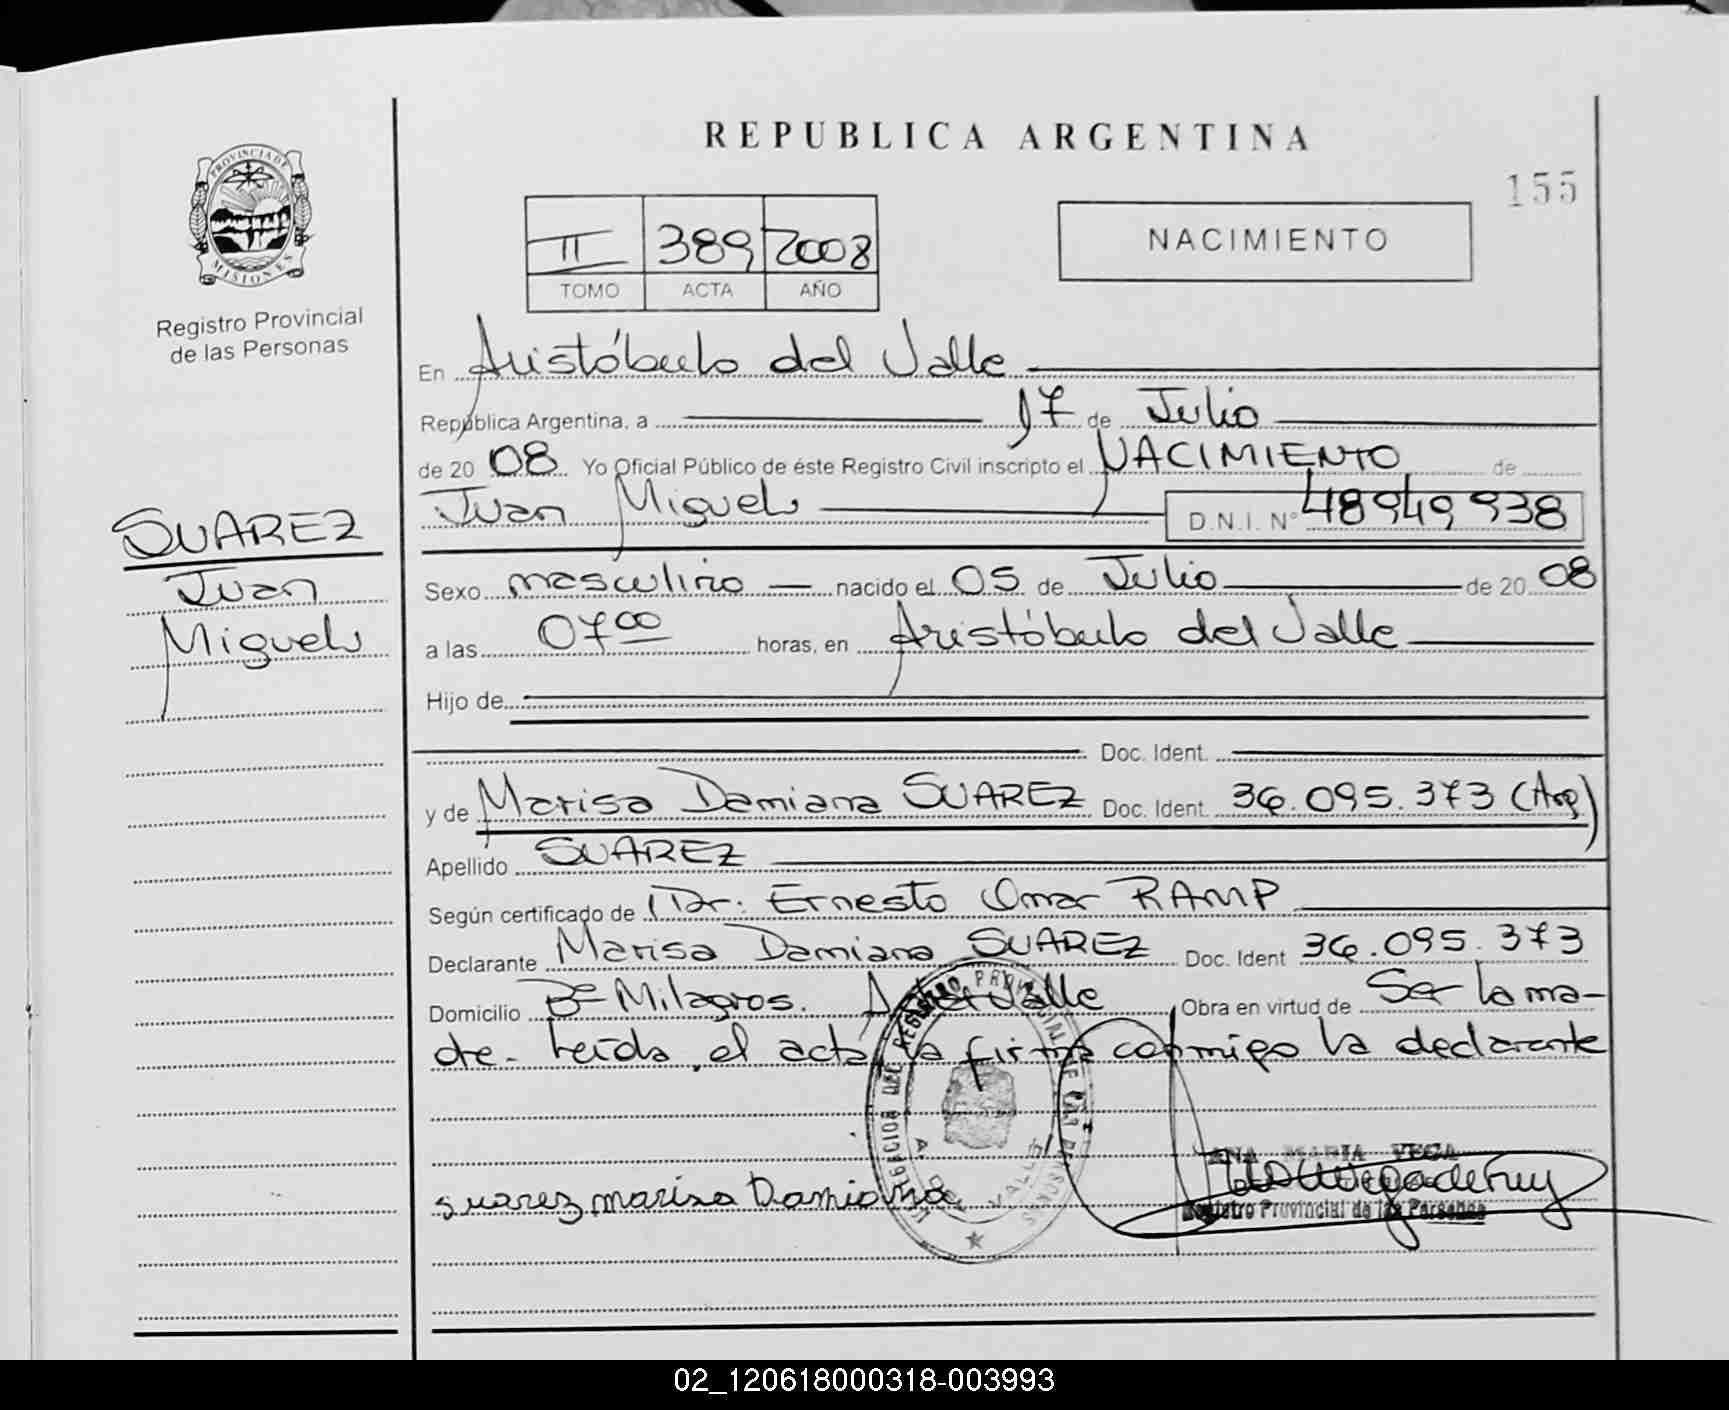 REPUBLICA ARGENTINA
155
PROVINCIA DE
MISIONES
Registro Provincial
de las Personas
II 389 2008
TOMO ACTA AÑO
NACIMIENTO
En Aristóbulo del Valle
República Argentina, a 17 de Julio
de 2008 Yo Oficial Público de éste Registro Civil inscripto el NACIMIENTO de
Juan Miguel D.N.I. N° 48949938
SUAREZ
Juan
Miguel
Sexo masculino nacido el 05 de Julio de 2008
a las 07 00 horas, en Aristóbulo del Valle
Hijo de
Doc. Ident.
y de Marisa Damiana SUAREZ Doc. Ident. 36.095.373 (Arg)
Apellido SUAREZ
Según certificado de Dr. Ernesto Omar RAMP
Declarante Marisa Damiana SUAREZ Doc. Ident 36.095.373
Domicilio Bº Milagros. A del Valle Obra en virtud de Ser la ma-
dre- Leída el acta, la firma conmigo la declarante
ANA MARIA VEGA
suarez marisa Damiana
Registro Provincial de las Personas
02_120618000318-003993